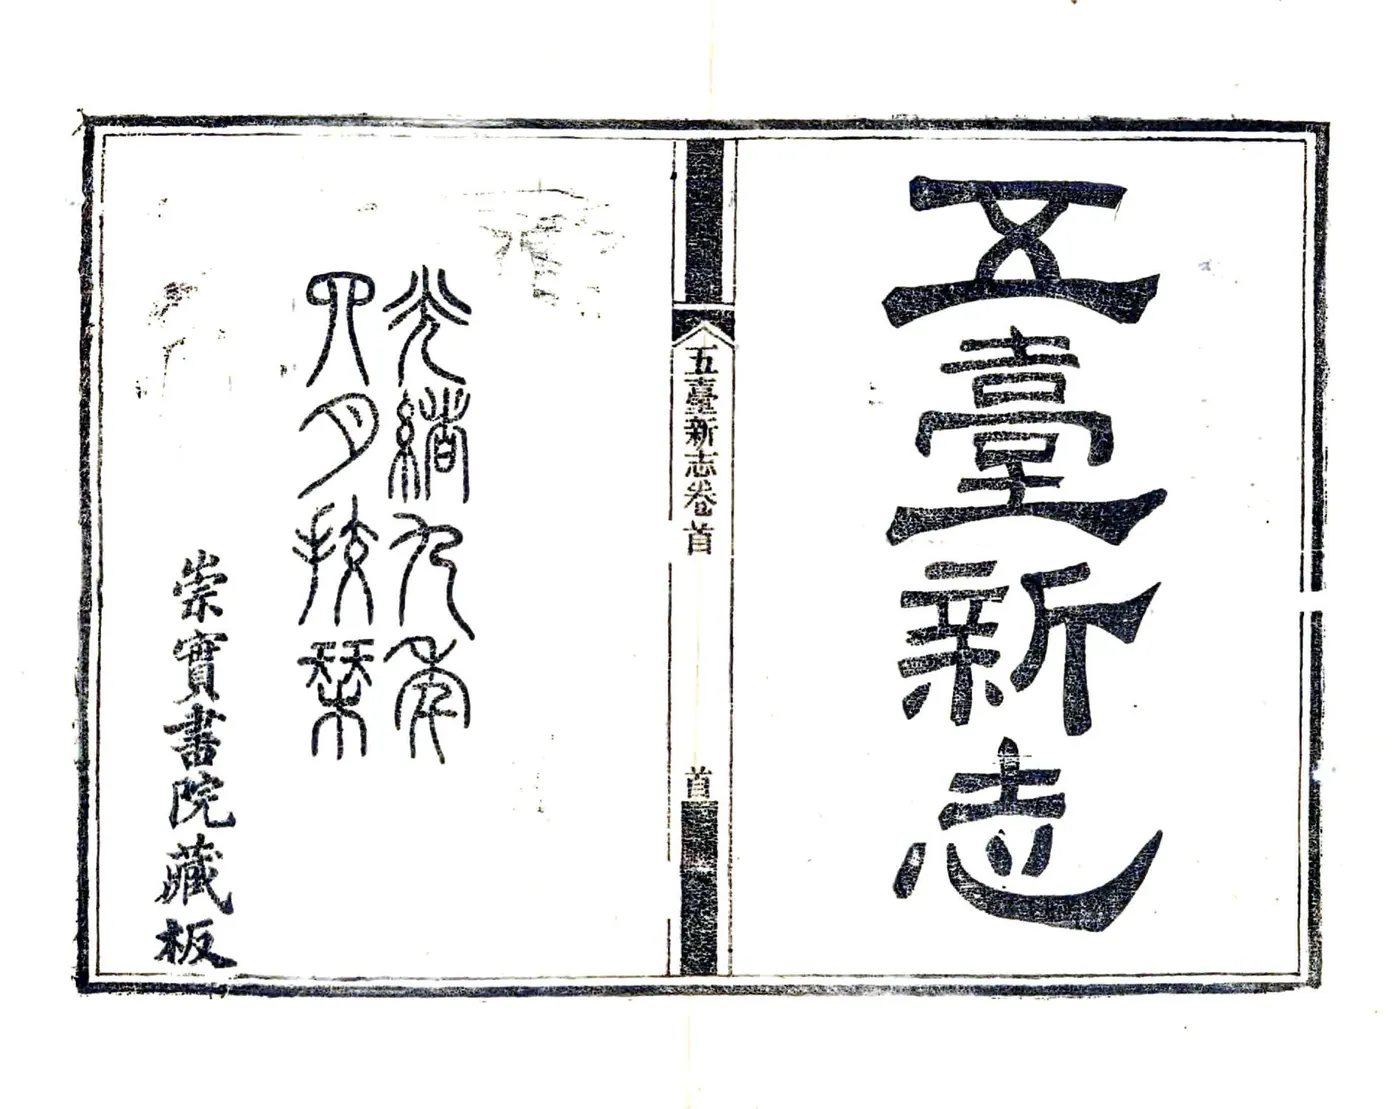 五臺新志
五臺新志卷首
首
光緒九年
四月挍栞
崇實書院藏板